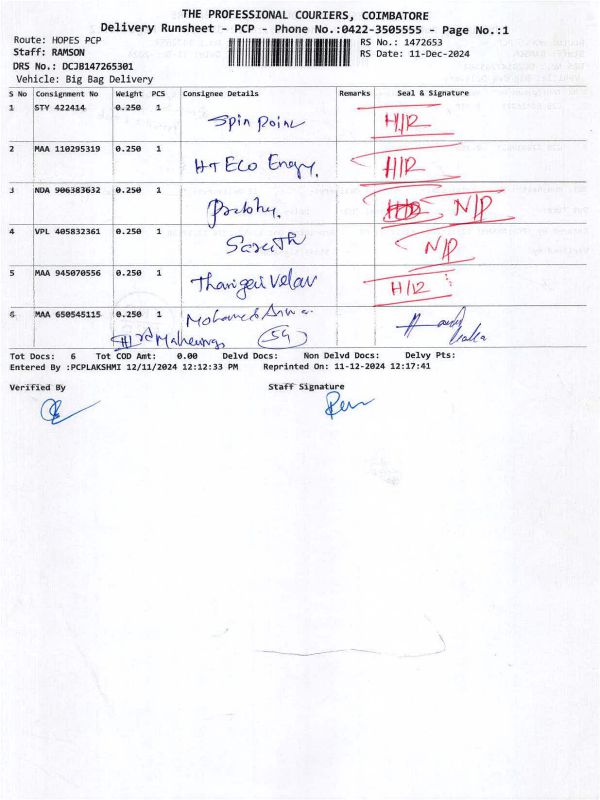 THE PROFESSIONAL COURIERS, COIMBATORE
Delivery Runsheet - PCP - Phone No.:0422-3505555 - Page No.:1
Route: HOPES PCP RS No.: 1472653
Staff: RAMSON RS Date: 11-Dec-2024
DRS No.: DCJB147265301
Vehicle: Big Bag Delivery
S No Consignment No Weight PCS Consignee Details Remarks Seal & Signature
1 STY 422414 0.250 1 Spin Point H/R
2 MAA 110295319 0.250 1 HT Eco Energy. H/R
3 NDA 906383632 0.250 1 Prabhu. N/P
4 VPL 405832361 0.250 1 Sarath N/P
5 MAA 945070556 0.250 1 Thangavelav H/R
6 MAA 650545115 0.250 1 Mohamed Anwa
59
Tot Docs: 6 Tot COD Amt: 0.00 Delvd Docs: Non Delvd Docs: Delvy Pts:
Entered By :PCPLAKSHMI 12/11/2024 12:12:33 PM Reprinted On: 11-12-2024 12:17:41
Verified By Staff Signature